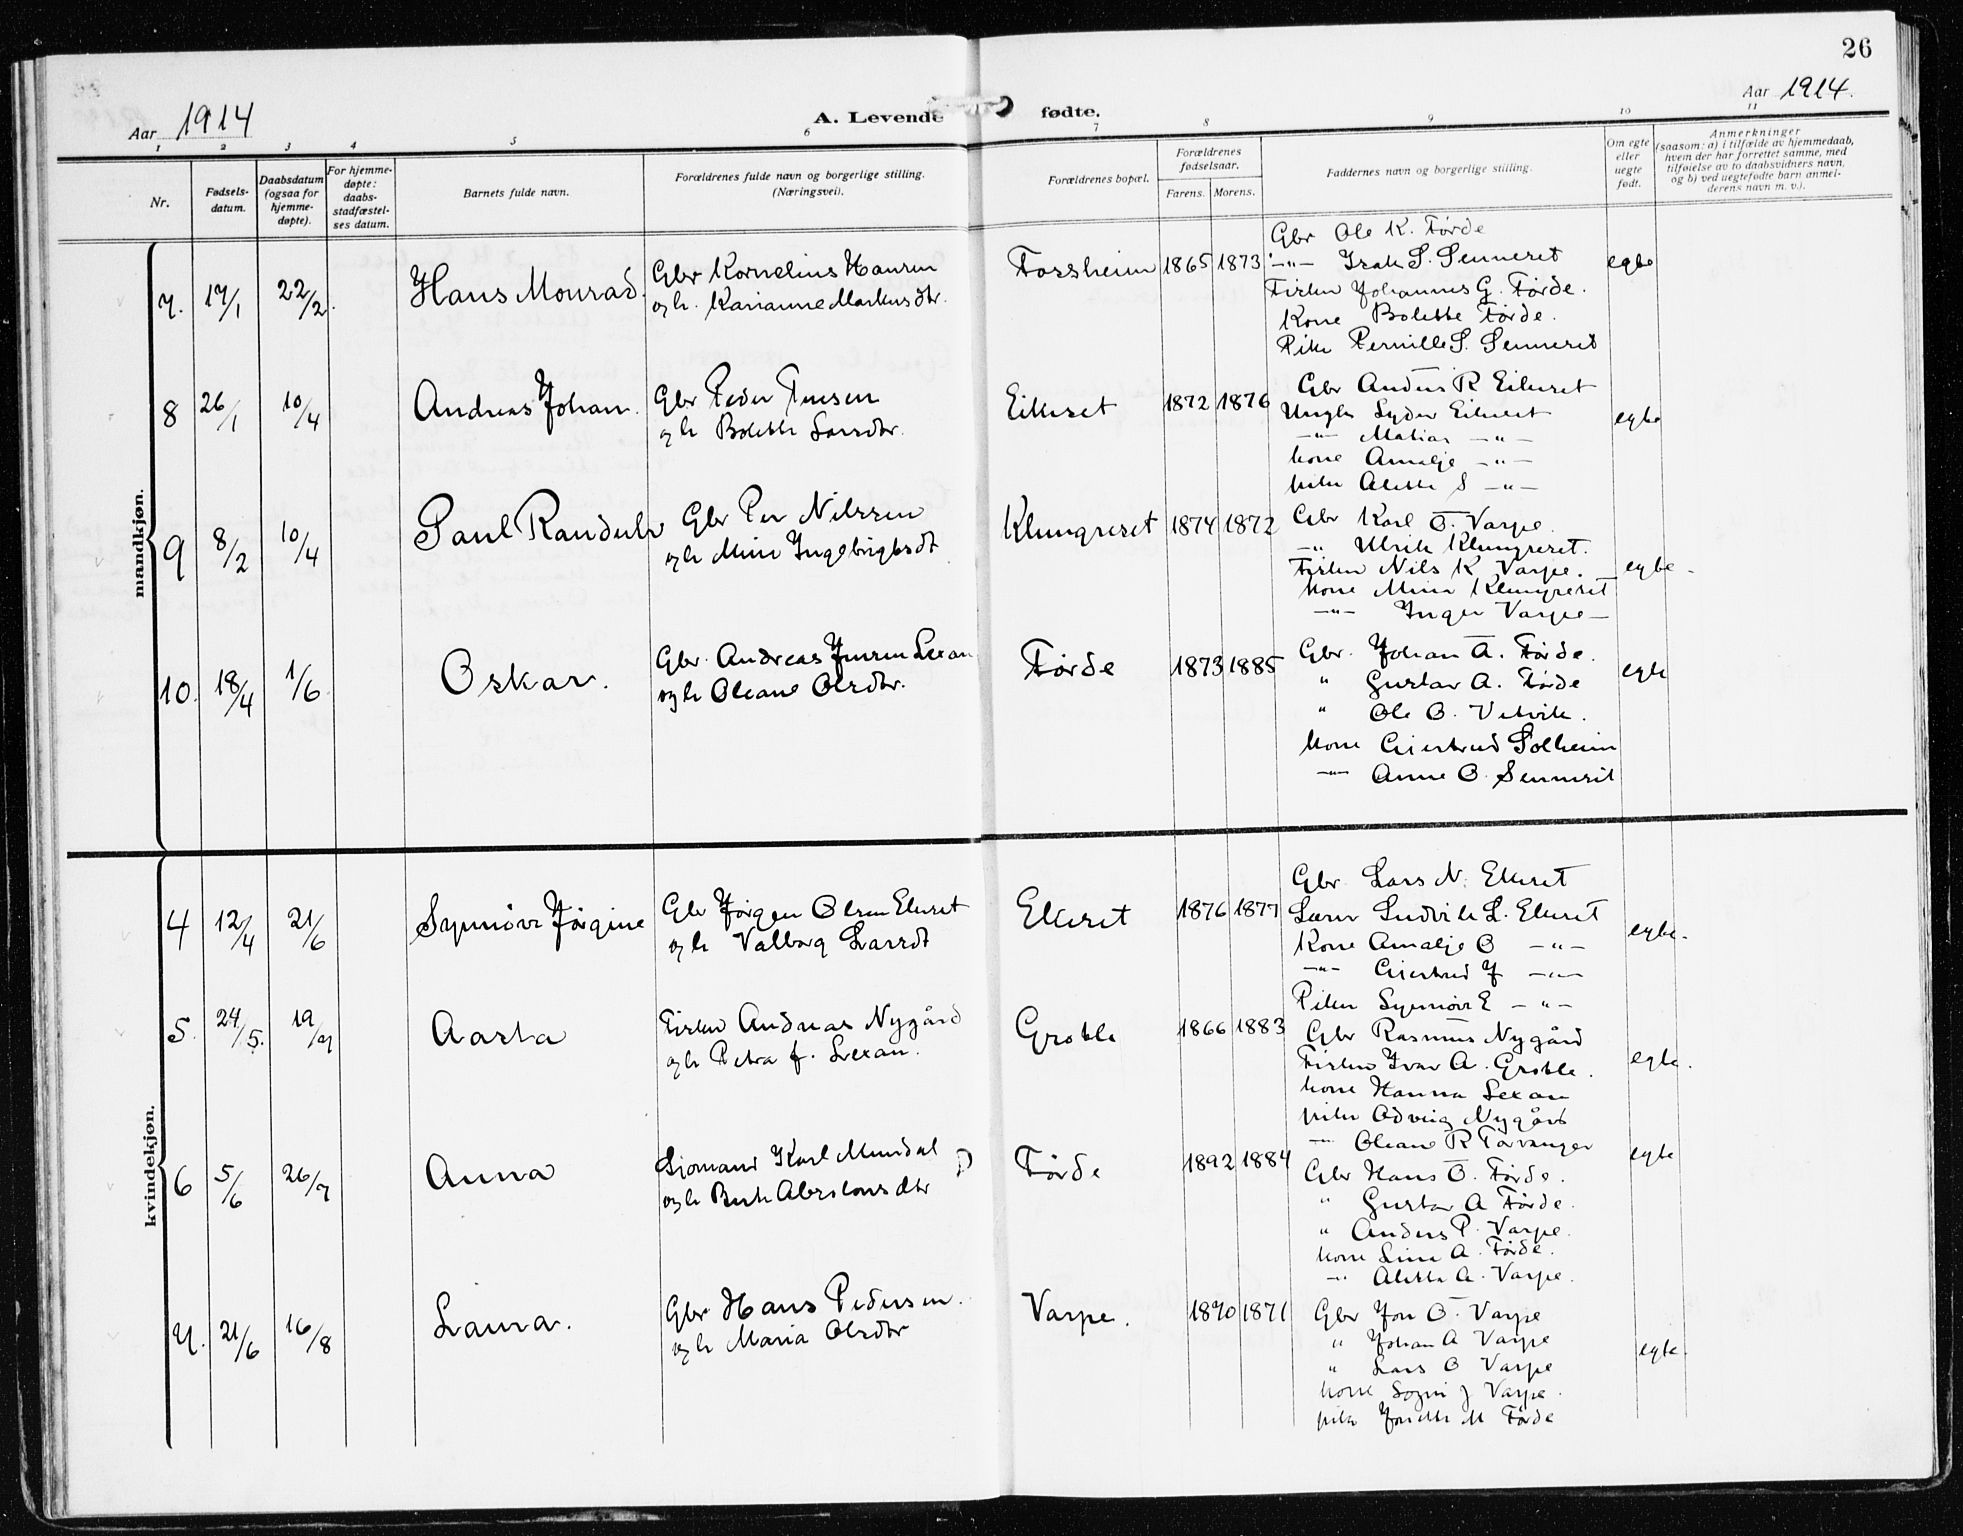 26
Aar 1914
A. Levende fødte.
Aar 1914.
1 2 3 4 5 6 7 8 9 10 11
Nr.
Fødsels-
datum.
Daabsdatum
(ogsaa for
hjemme-
døpte).
For hjemme-
døpte:
daabs-
stadfæstel-
ses datum.
Barnets fulde navn.
Forældrenes fulde navn og borgerlige stilling.
(Næringsvei).
Forældrenes bopæl.
Forældrenes
fødselsaar.
Farens. Morens.
Faddernes navn og borgerlige stilling.
Om egte
eller
uegte
født.
Anmerkninger
(saasom: a) i tilfælde av hjemmedaab,
hvem der har forrettet samme, med
tilføielse av to daabsvidners navn,
og b) ved uegtefødte barn anmel-
derens navn m. v.).
mandkjøn.
7. 17/1 22/2. Hans Monrad.
Gbr Kornelius Hansen
og h. Karianne Markusdtr.
Forsheim 1865 1873
Gbr Ole K. Førde
-"- Isak S. Senneset
Fisker Johannes G. Førde.
Kone Bolette Førde.
Pike Pernille S. Senneset
egte
8 26/1 10/4 Andreas Johan.
Gbr Peder
og h Bolette Larsdtr.
Eikeset 1872 1876
Gbr Anders R Eikeset
Ungk Syder Eikeset
-"- Matias -"-
kone Amalje -"-
pike Alette S -"-
egte
9 8/2 10/4 Paul Randulv
Gbr Per Nilssen
og h Mina Ingebrigtsdt
Klungreset 1874 1872
Gbr Karl O. Varpe.
-"- Ulrik Klungreset.
Fisker Nils K Varpe.
kone Mina Klungreset
-"- Inger Varpe
egte.
10. 18/4 1/6 Oskar.
Gbr. Andreas Jensen Lexau
og h Oleane Olsdtr.
Førde 1873 1885
Gbr. Johan A. Førde.
" Gustav A. Førde
" Ole O. Vetvik.
kone Gjertrud Solheim
-"- Anne O. Senneset
egte
kvindekjøn.
4 12/4 21/6 Synnøve Jørgine
Gbr Jørgen Olsen Ekeset
og h Valborg Larsdt
Ekeset 1876 1877
Gbr. Lars N. Ekeset
Lærer Ludvik L. Ekeset
Kone Amalje O -"-
-"- Gjertrud J -"-
Piken Synnøve E -"-
egte.
5. 24/5. 19/7 Aasta
Fisker Andreas Nygård
og h Petra f. Lexau.
Grotle 1866 1883
Gbr Rasmus Nygård
Fisker Ivar A. Grotle.
kone Hanna Lexau
pike Odveig Nygård
-"- Oleane R Torvanger
egte.
6 5/6 26/7 Anna
Sjømand Karl Mundal
og h Berte Absolonsdtr
Førde 1892 1884
Gbr Hans O. Førde.
" Gustav A Førde.
" Anders P. Varpe.
kone Lina A. Førde.
-"- Alette A. Varpe.
egte
7. 21/6 16/8 Laura.
Gbr Hans Pedersen.
og h Maria Olsdtr
Varpe. 1870 1871
Gbr Jon O. Varpe
" Johan A Varpe
" Lars O Varpe
kone J Varpe.
pike Jonette M Førde
egte.